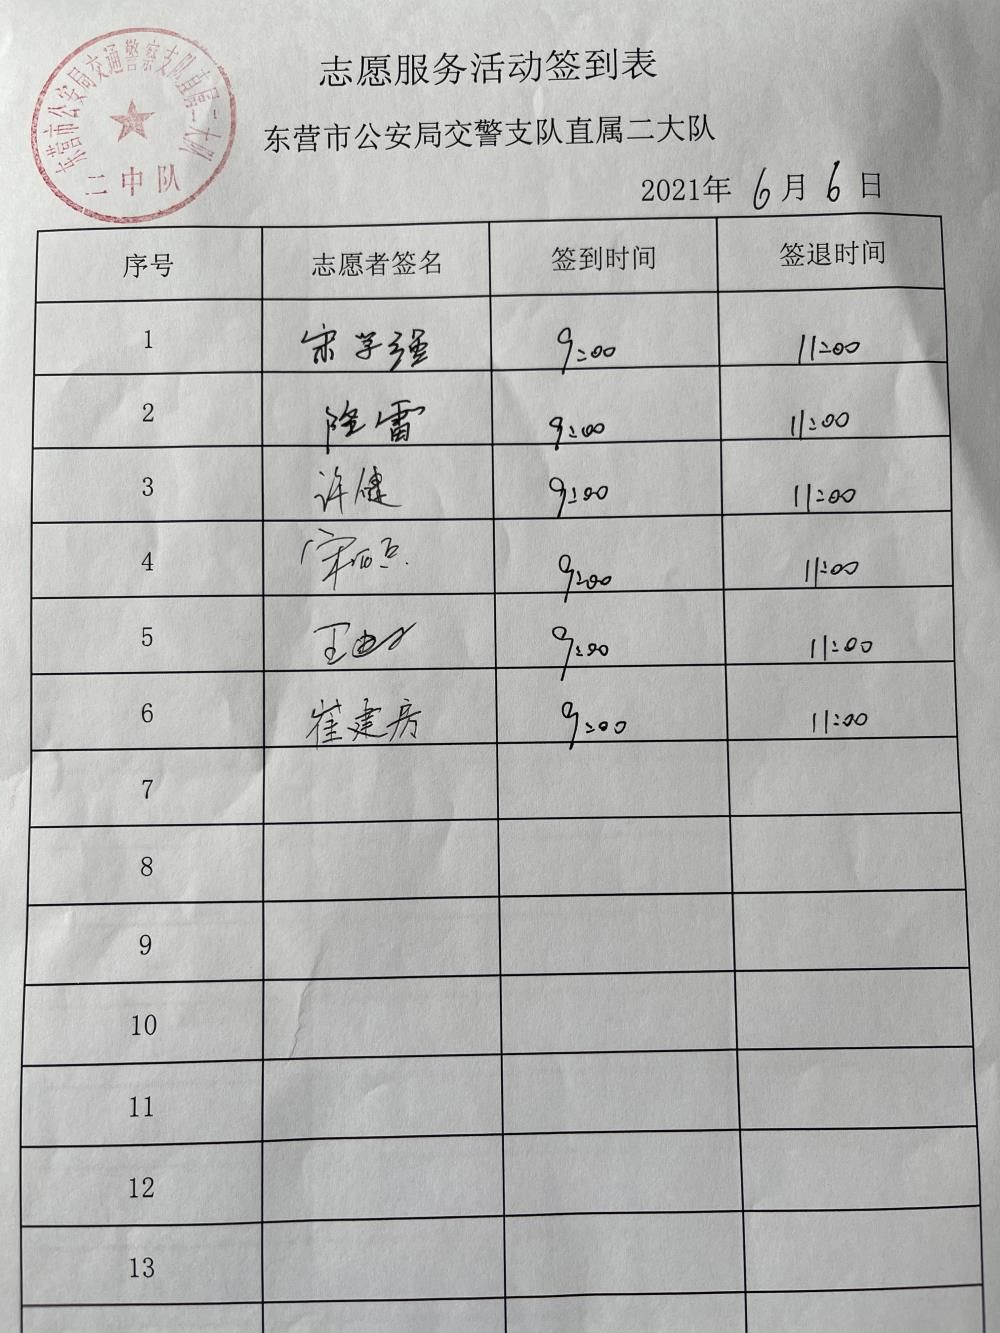 东营市公安局交通警察支队直属二大队
二中队
志愿服务活动签到表
东营市公安局交警支队直属二大队
2021年 6月 6日
序号 志愿者签名 签到时间 签退时间
1 宋学强 9:00 11:00
2 隆雷 9:00 11:00
3 许健 9:00 11:00
4 9:00 11:00
5 9:00 11:00
6 崔建房 9:00 11:00
7
8
9
10
11
12
13